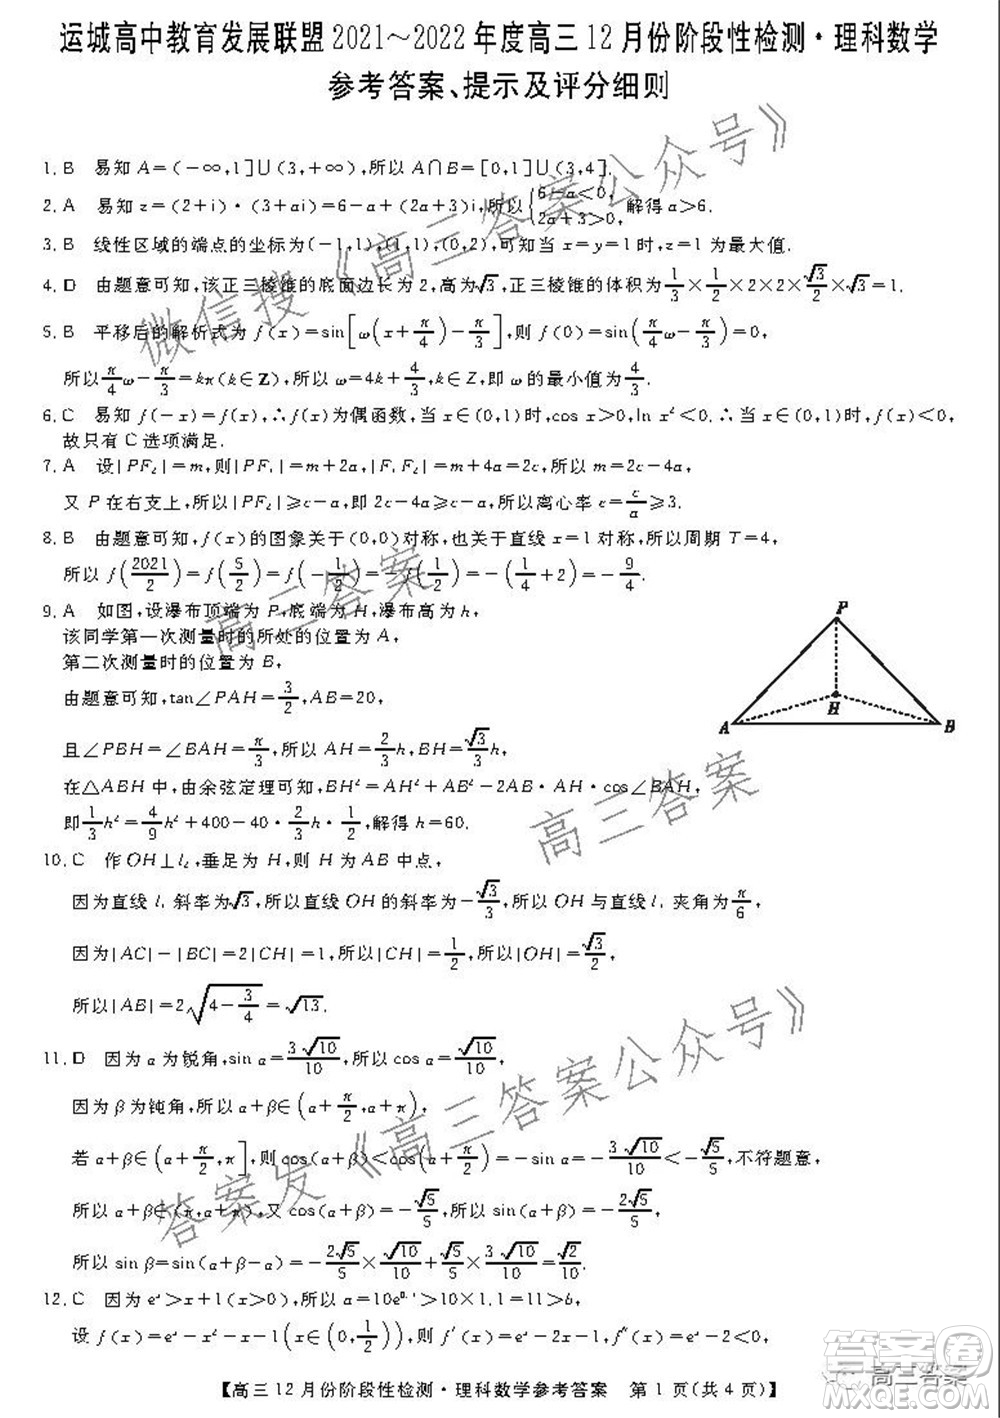 运城高中教育发展联盟2021～2022年度高三12月份阶段性检测·理科数学
参考答案、提示及评分细则
1. B 易知A=(-∞,1]∪(3,+∞),所以A∩B=[0,1]∪(3,4].
2. A 易知z=(2+i)·(3+ai)=6-a+(2a+3)i,所以{6-a<0, 2a+3>0, 解得a>6.
3. B 线性区域的端点的坐标为(-1,1),(1,1),(0,2),可知当x=y=1时,z=1为最大值.
4. D 由题意可知,该正三棱锥的底面边长为2,高为√3,正三棱锥的体积为1/3×1/2×2×2×√3/2×√3=1.
5. B 平移后的解析式为f(x)=sin[ω(x+π/4)-π/3],则f(0)=sin(π/4 ω-π/3)=0,
所以π/4 ω-π/3=kπ(k∈Z),所以ω=4k+4/3,k∈Z,即ω的最小值为4/3.
6. C 易知f(-x)=f(x),∴f(x)为偶函数,当x∈(0,1)时,cos x>0,ln x²<0.∴当x∈(0,1)时,f(x)<0,
故只有C选项满足.
7. A 设|PF₂|=m,则|PF₁|=m+2a,|F₁F₂|=m+4a=2c,所以m=2c-4a,
又P在右支上,所以|PF₂|≥c-a,即2c-4a≥c-a,所以离心率e=c/a≥3.
8. B 由题意可知,f(x)的图象关于(0,0)对称,也关于直线x=1对称,所以周期T=4,
所以f(2021/2)=f(5/2)=f(-1/2)=-f(1/2)=-(1/4+2)=-9/4.
9. A 如图,设瀑布顶端为P,底端为H,瀑布高为h,
该同学第一次测量时的所处的位置为A,
第二次测量时的位置为B,
由题意可知,tan∠PAH=3/2,AB=20,
且∠PBH=∠BAH=π/3,所以AH=2/3 h,BH=√3/3 h,
在△ABH中,由余弦定理可知,BH²=AH²+AB²-2AB·AH·cos∠BAH,
即1/3 h²=4/9 h²+400-40·2/3 h·1/2,解得h=60.
P
H
A
B
10. C 作OH⊥l₂,垂足为H,则H为AB中点,
因为直线l₁斜率为√3,所以直线OH的斜率为-√3/3,所以OH与直线l₁夹角为π/6,
因为|AC|-|BC|=2|CH|=1,所以|CH|=1/2,所以|OH|=√3/2,
所以|AB|=2√(4-3/4)=√13.
11. D 因为α为锐角,sin α=3√10/10,所以cos α=√10/10,
因为β为钝角,所以α+β∈(α+π/2,α+π),
若α+β∈(α+π/2,π],则cos(α+β)<cos(α+π/2)=-sin α=-3√10/10<-√5/5,不符题意,
所以α+β∈(π,α+π),又cos(α+β)=-√5/5,所以sin(α+β)=-2√5/5,
所以sin β=sin(α+β-α)=-2√5/5×√10/10+√5/5×3√10/10=√2/10.
12. C 因为eˣ>x+1(x>0),所以a=10e^0.1>10×1.1=11>b,
设f(x)=eˣ-x²-x-1(x∈(0,1/2)),则f′(x)=eˣ-2x-1,f″(x)=eˣ-2<0,
【高三12月份阶段性检测·理科数学参考答案 第1页(共4页)】
微信搜《高三答案公众号》
高三答案
高三答案
答案发《高三答案公众号》
高三答案
答案圈
MXQE.COM